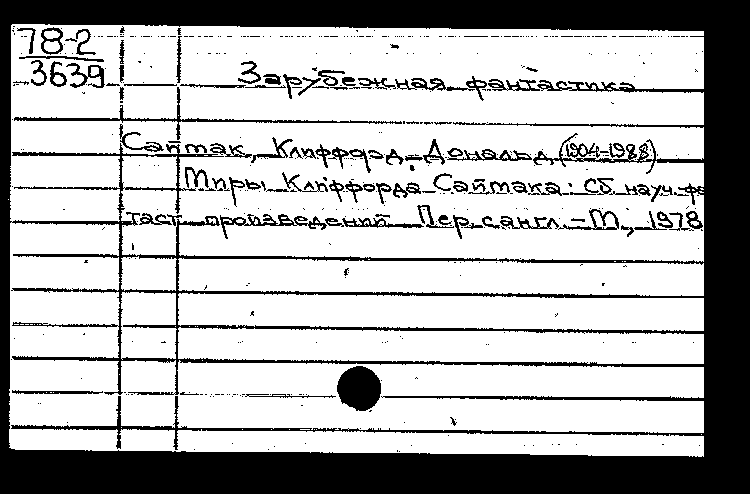 78-2
3639
Зарубежная фантастика
Саймак, Клиффорд Дональд (1904-1988)
Миры Клиффорда Саймака: Сб. науч.-фа
таст. произведений. Пер. с англ. - М., 1978